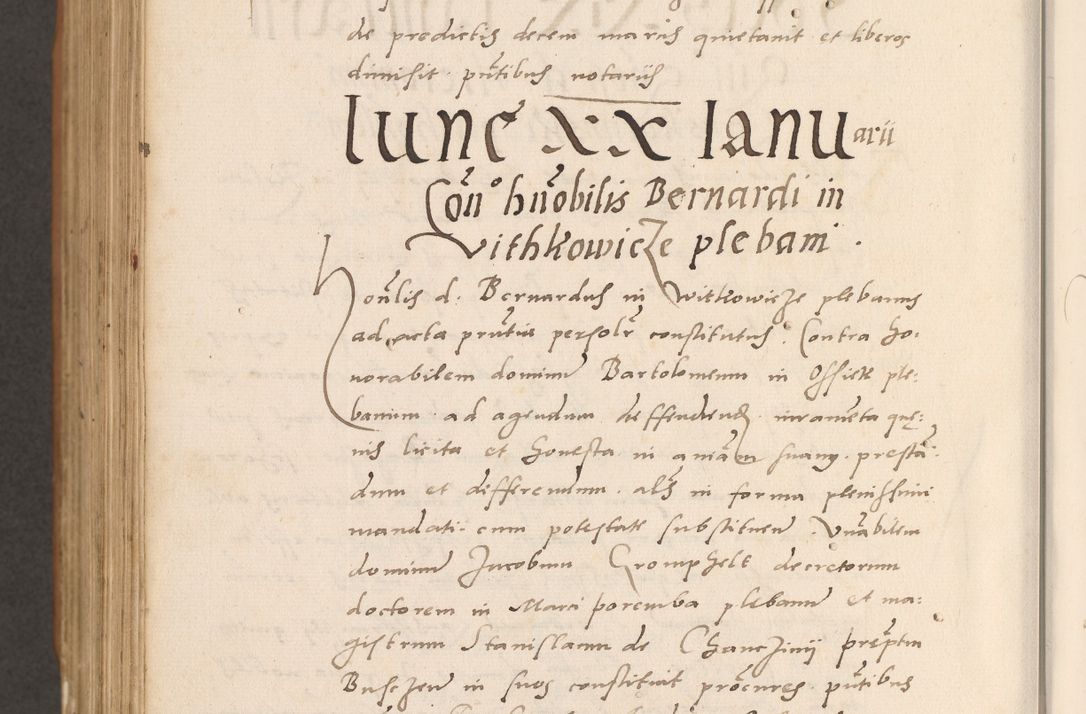 de predictis decem marcis quietauit et liberos
dimisit pntibus notariis
lune XX Ianuarii
Con° hnobilis Bernardi in
Vithkowicze plebani .
Honlis d: Bernardus in Witkowicze plebanus
ad acta pruntia personlr constitutus . Contra ho:
norabilem dominum Bartolomeum in Ossiek ple:
banum . ad agendum deffendend iuramenta que:
uis licita et honesta in animam suam . presta:
dum et defferendum . als in forma plenissimi
mandati cum potestate substituen . Vnabilem
dominum Jacobum Gromphelt decretorum
doctorem in Marci poremba plebanum et ma:
gistrum Stanislaum de Chanczinij preptm
Busczen in suos constituit procures . pntibus